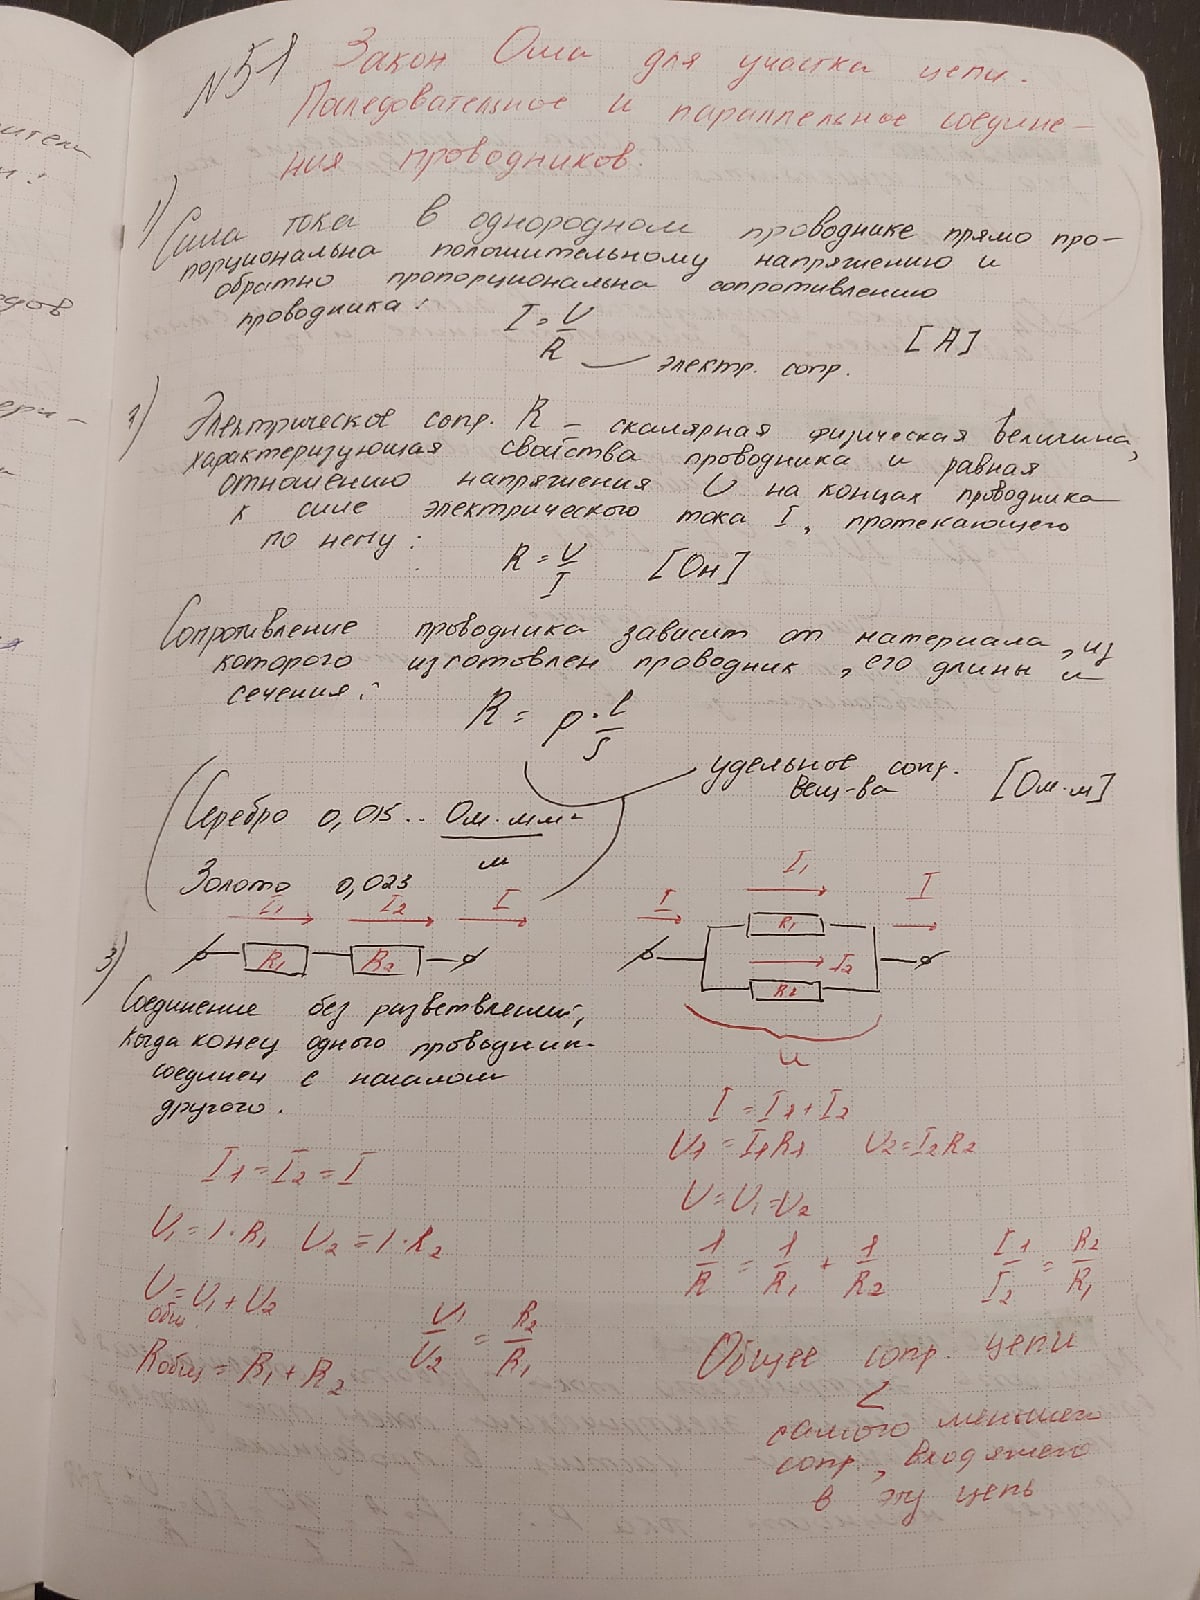 №51 Закон Ома для участка цепи.
Последовательное и параллельное соедине-
ния проводников.
1) Сила тока в однородном проводнике прямо про-
порциональна положительному напряжению и
обратно пропорциональна сопротивлению
проводника:
I = U/R [A]
электр. сопр.
2) Электрическое сопр. R – скалярная физическая величина,
характеризующая свойства проводника и равная
отношению напряжения U на концах проводника
к силе электрического тока I, протекающего
по нему:
R = U/I [Ом]
Сопротивление проводника зависит от материала, из
которого изготовлен проводник, его длины и
сечения:
R = ρ·l/S
удельное сопр.
вещ-ва [Ом·м]
(Серебро 0,015.. Ом·мм²/м
Золото 0,023)
I₁ I₂ I
R₁ R₂
I I₁ I
R₁
I₂
R₂
u
3)
Соединение без разветвлений,
когда конец одного проводник-
соединен с началом
другого.
I₁ = I₂ = I
U₁ = I·R₁ U₂ = I·R₂
Uобщ = U₁ + U₂
U₁/U₂ = R₂/R₁
Rобщ = R₁ + R₂
I = I₁ + I₂
U₁ = I₁R₁ U₂ = I₂R₂
U = U₁ = U₂
1/R = 1/R₁ + 1/R₂ I₁/I₂ = R₂/R₁
Общее сопр. цепи
<
самого меньшего
сопр., входящего
в эту цепь